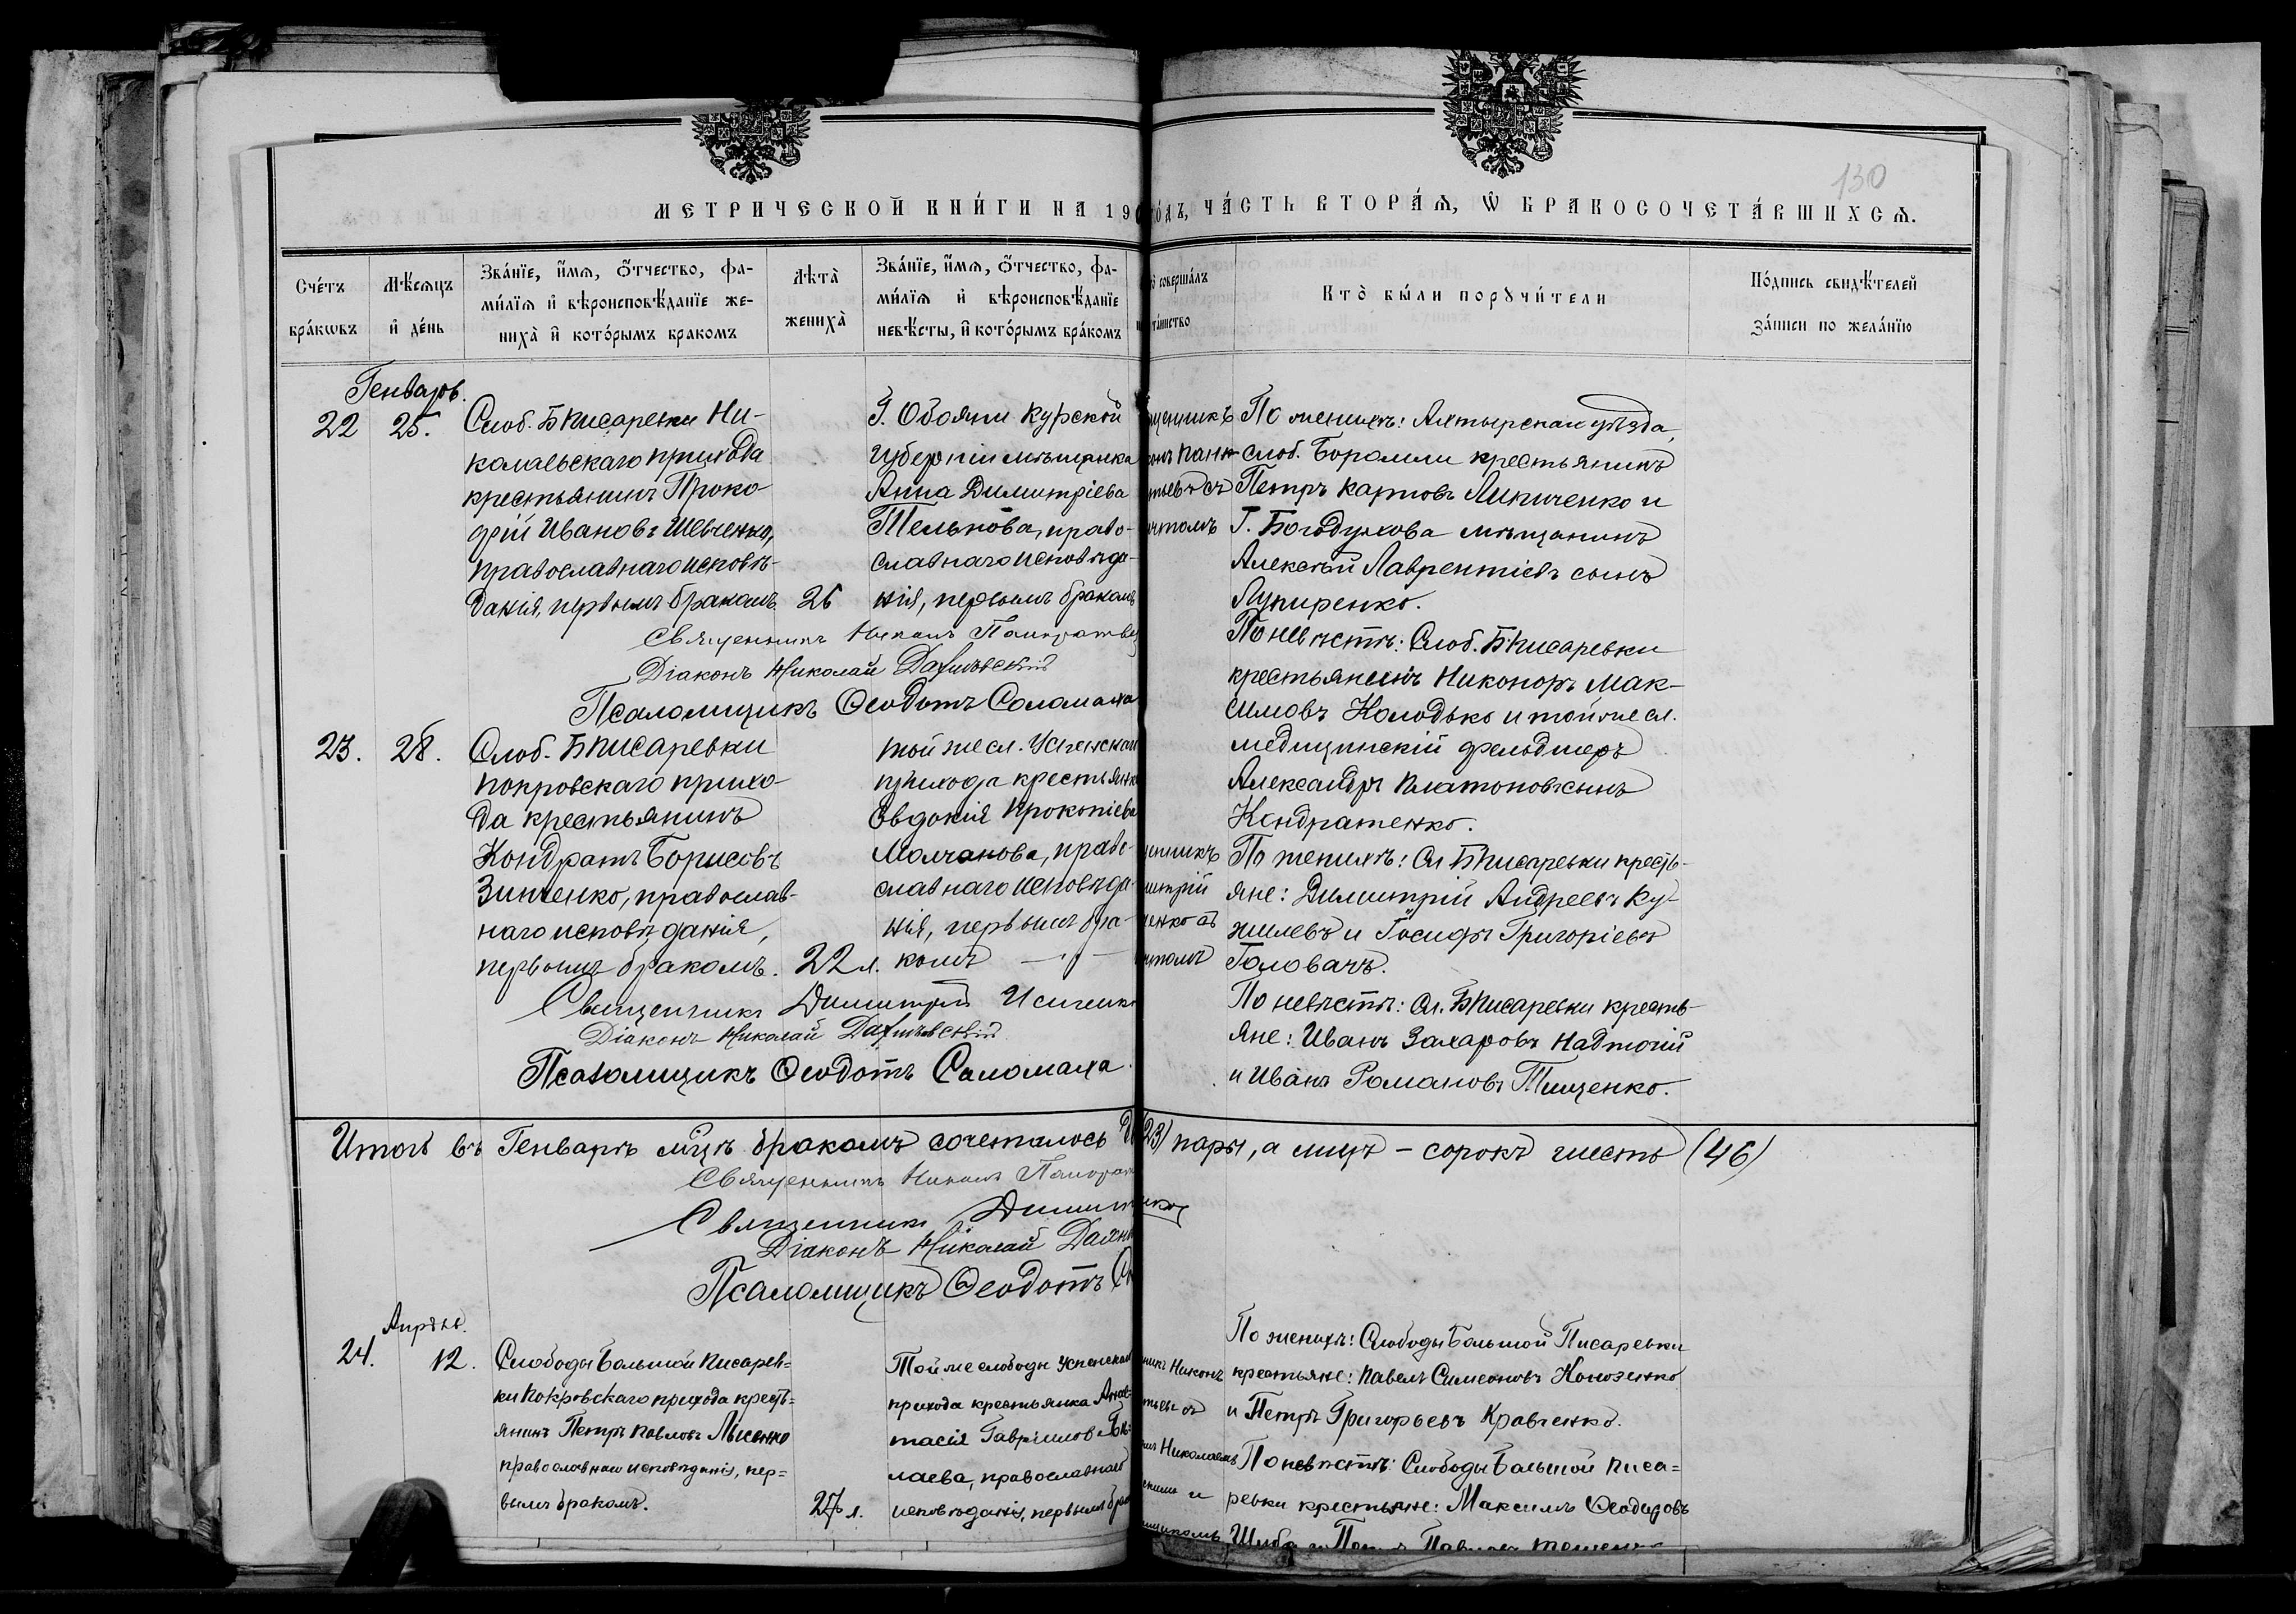 130
МЕТРИЧЕСКОЙ КНИ́ГИ НА 190
го́дъ, ЧА́СТЬ ВТОРА́Ѧ, Ѡ БРАКОСОЧЕТА́ВШИХСѦ.
Сче́тъ бра́кѡвъ
Мѣ́сяцъ и҆ де́нь
Зва́нїе, и҆́мѧ, ѻ҆́тчество, фа-
ми́лїѧ и҆ вѣроисповѣ́данїе же-
ниха̀ и҆ кото́рымъ бракомъ
Лѣта̀ жениха̀
Зва́нїе, и҆́мѧ, ѻ҆́тчество, фа-
ми́лїѧ и҆ вѣроисповѣ́данїе
невѣ́сты, и҆ кото́рымъ бра́комъ
совершáлъ
та́инство
Кто̀ бы́ли порꙋчи́тели
По́дпись свидѣ́телей
за́писи по жела́нїю
Генварь.
22 25.
Слоб. БПисаревки Ни-
колаевскаго прихода
крестьянинъ Проко-
фій Ивановъ Шевченко,
православнаго исповѣ-
данія, первымъ бракомъ
26
Г. Обояни Курской
губерніи мѣщанка
Анна Димитріева
Телькова, право-
славнаго исповѣда-
нія, первымъ бракомъ
По женихѣ: Ахтырскаго уѣзда,
слоб. Боромли крестьянинъ
Петръ Карповъ Линиченко и
Г. Богодухова мѣщанинъ
Алексѣй Лаврентіевъ сынъ
Лупиренко.
По невѣстѣ: Слоб. БПисаревки
крестьянинъ Никоноръ Мак-
симовъ Колодько и той же сл.
медицинскій фельдшеръ
Александръ Платоновъ сынъ
Кондратенко.
Священникъ Никонъ
Діаконъ Николай
Псаломщикъ Ѳеодотъ Соломаха
23. 28.
Слоб. БПисаревки
Покровскаго прихо-
да крестьянинъ
Кондратъ Борисовъ
Зинченко, православ-
наго исповѣданія,
первымъ бракомъ.
22 л.
той же сл. Успенскаго
прихода крестьянка
Евдокія Прокопіева
Молчанова, право-
славнаго исповѣда-
нія, первымъ бра-
комъ
По женихѣ: Сл БПисаревки кресть-
яне: Димитрій Андреевъ Ку-
жилевъ и Іосифъ Григоріевъ
Головачъ.
По невѣстѣ: Сл. БПисаревки кресть-
яне: Иванъ Захаровъ Надточій
и Иванъ Романовъ Тищенко.
Священникъ Димитрій
Діаконъ Николай
Псаломщикъ Ѳеодотъ Соломаха.
Итого въ Генварѣ м-цѣ бракомъ сочеталось
(23) пары, а лицъ – сорокъ шесть (46)
Священникъ Никонъ
Священникъ
Діаконъ Николай
Псаломщикъ Ѳеодотъ
Апрѣль.
24. 12.
Слободы Большой Писарев=
ки Покровскаго прихода кресть=
янинъ Петръ Павловъ Лысенко
православнаго исповѣданія, пер=
вымъ бракомъ.
27 л.
Той же слободы Успенскаго
прихода крестьянка Анас-
тасія Гавріилова
лаева, православнаго
исповѣданія, первымъ
По женихѣ: Слободы Большой Писаревки
крестьяне: Павелъ Симеоновъ Кононенко
и Петръ Григорьевъ Кравченко.
По невѣстѣ: Слободы Большой Писа=
ревки крестьяне: Максимъ Ѳеодоровъ